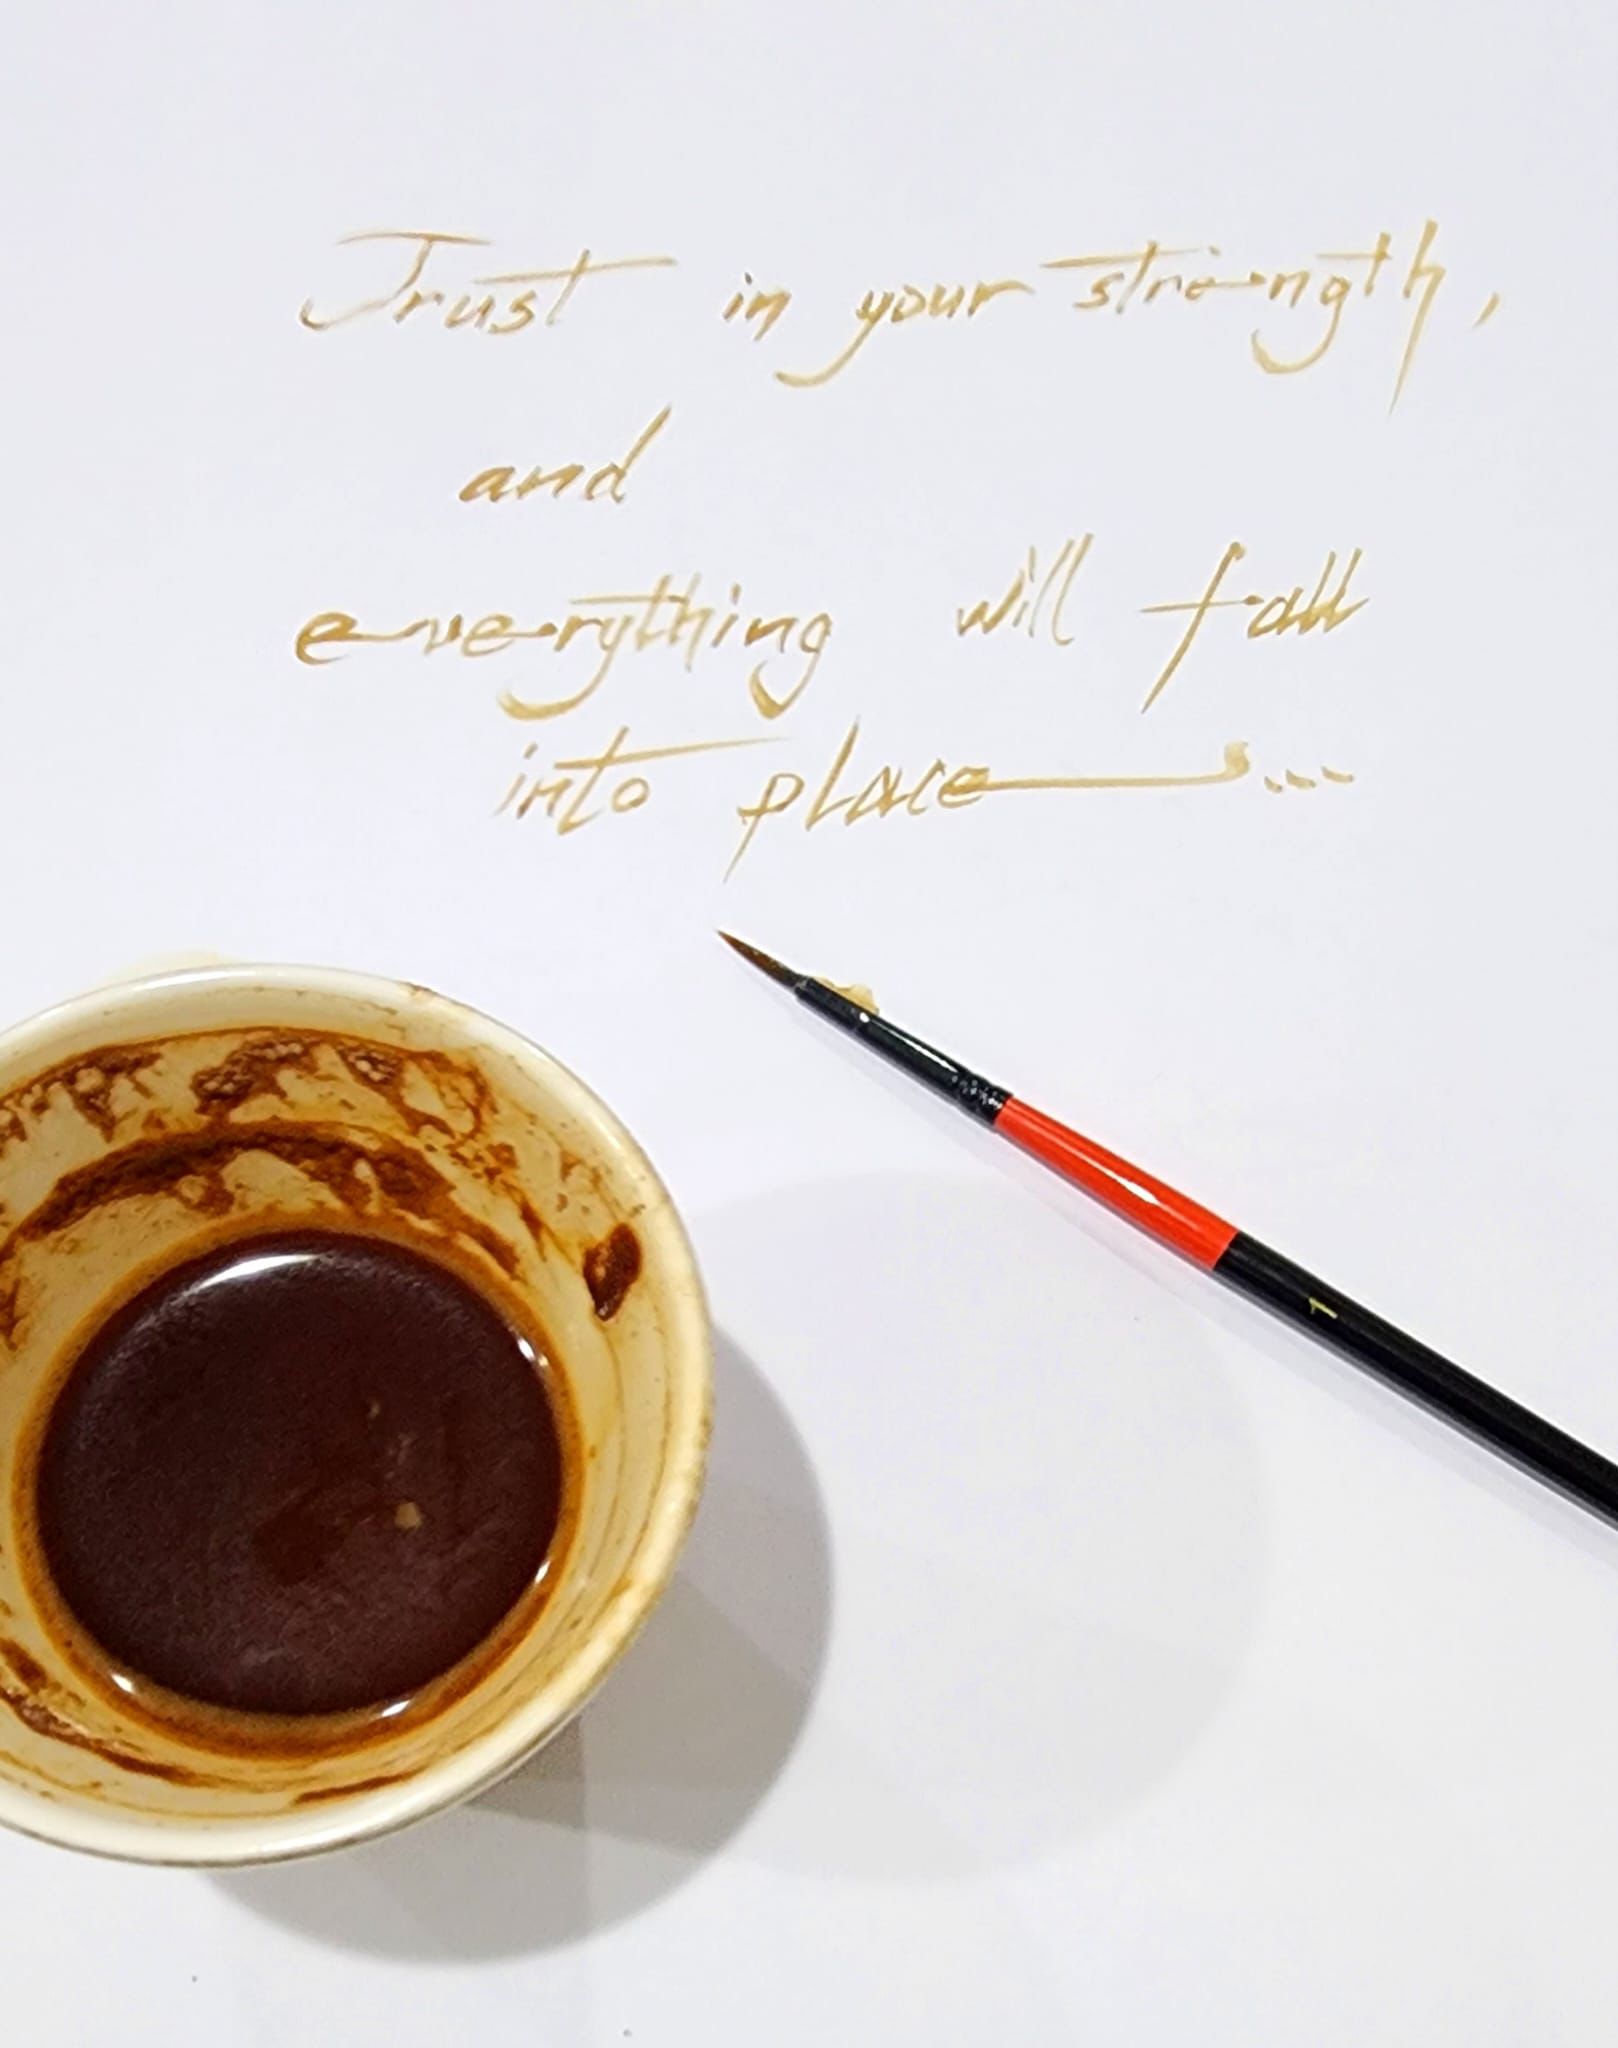 Trust in your strength,
and
everything will fall
into place...
1